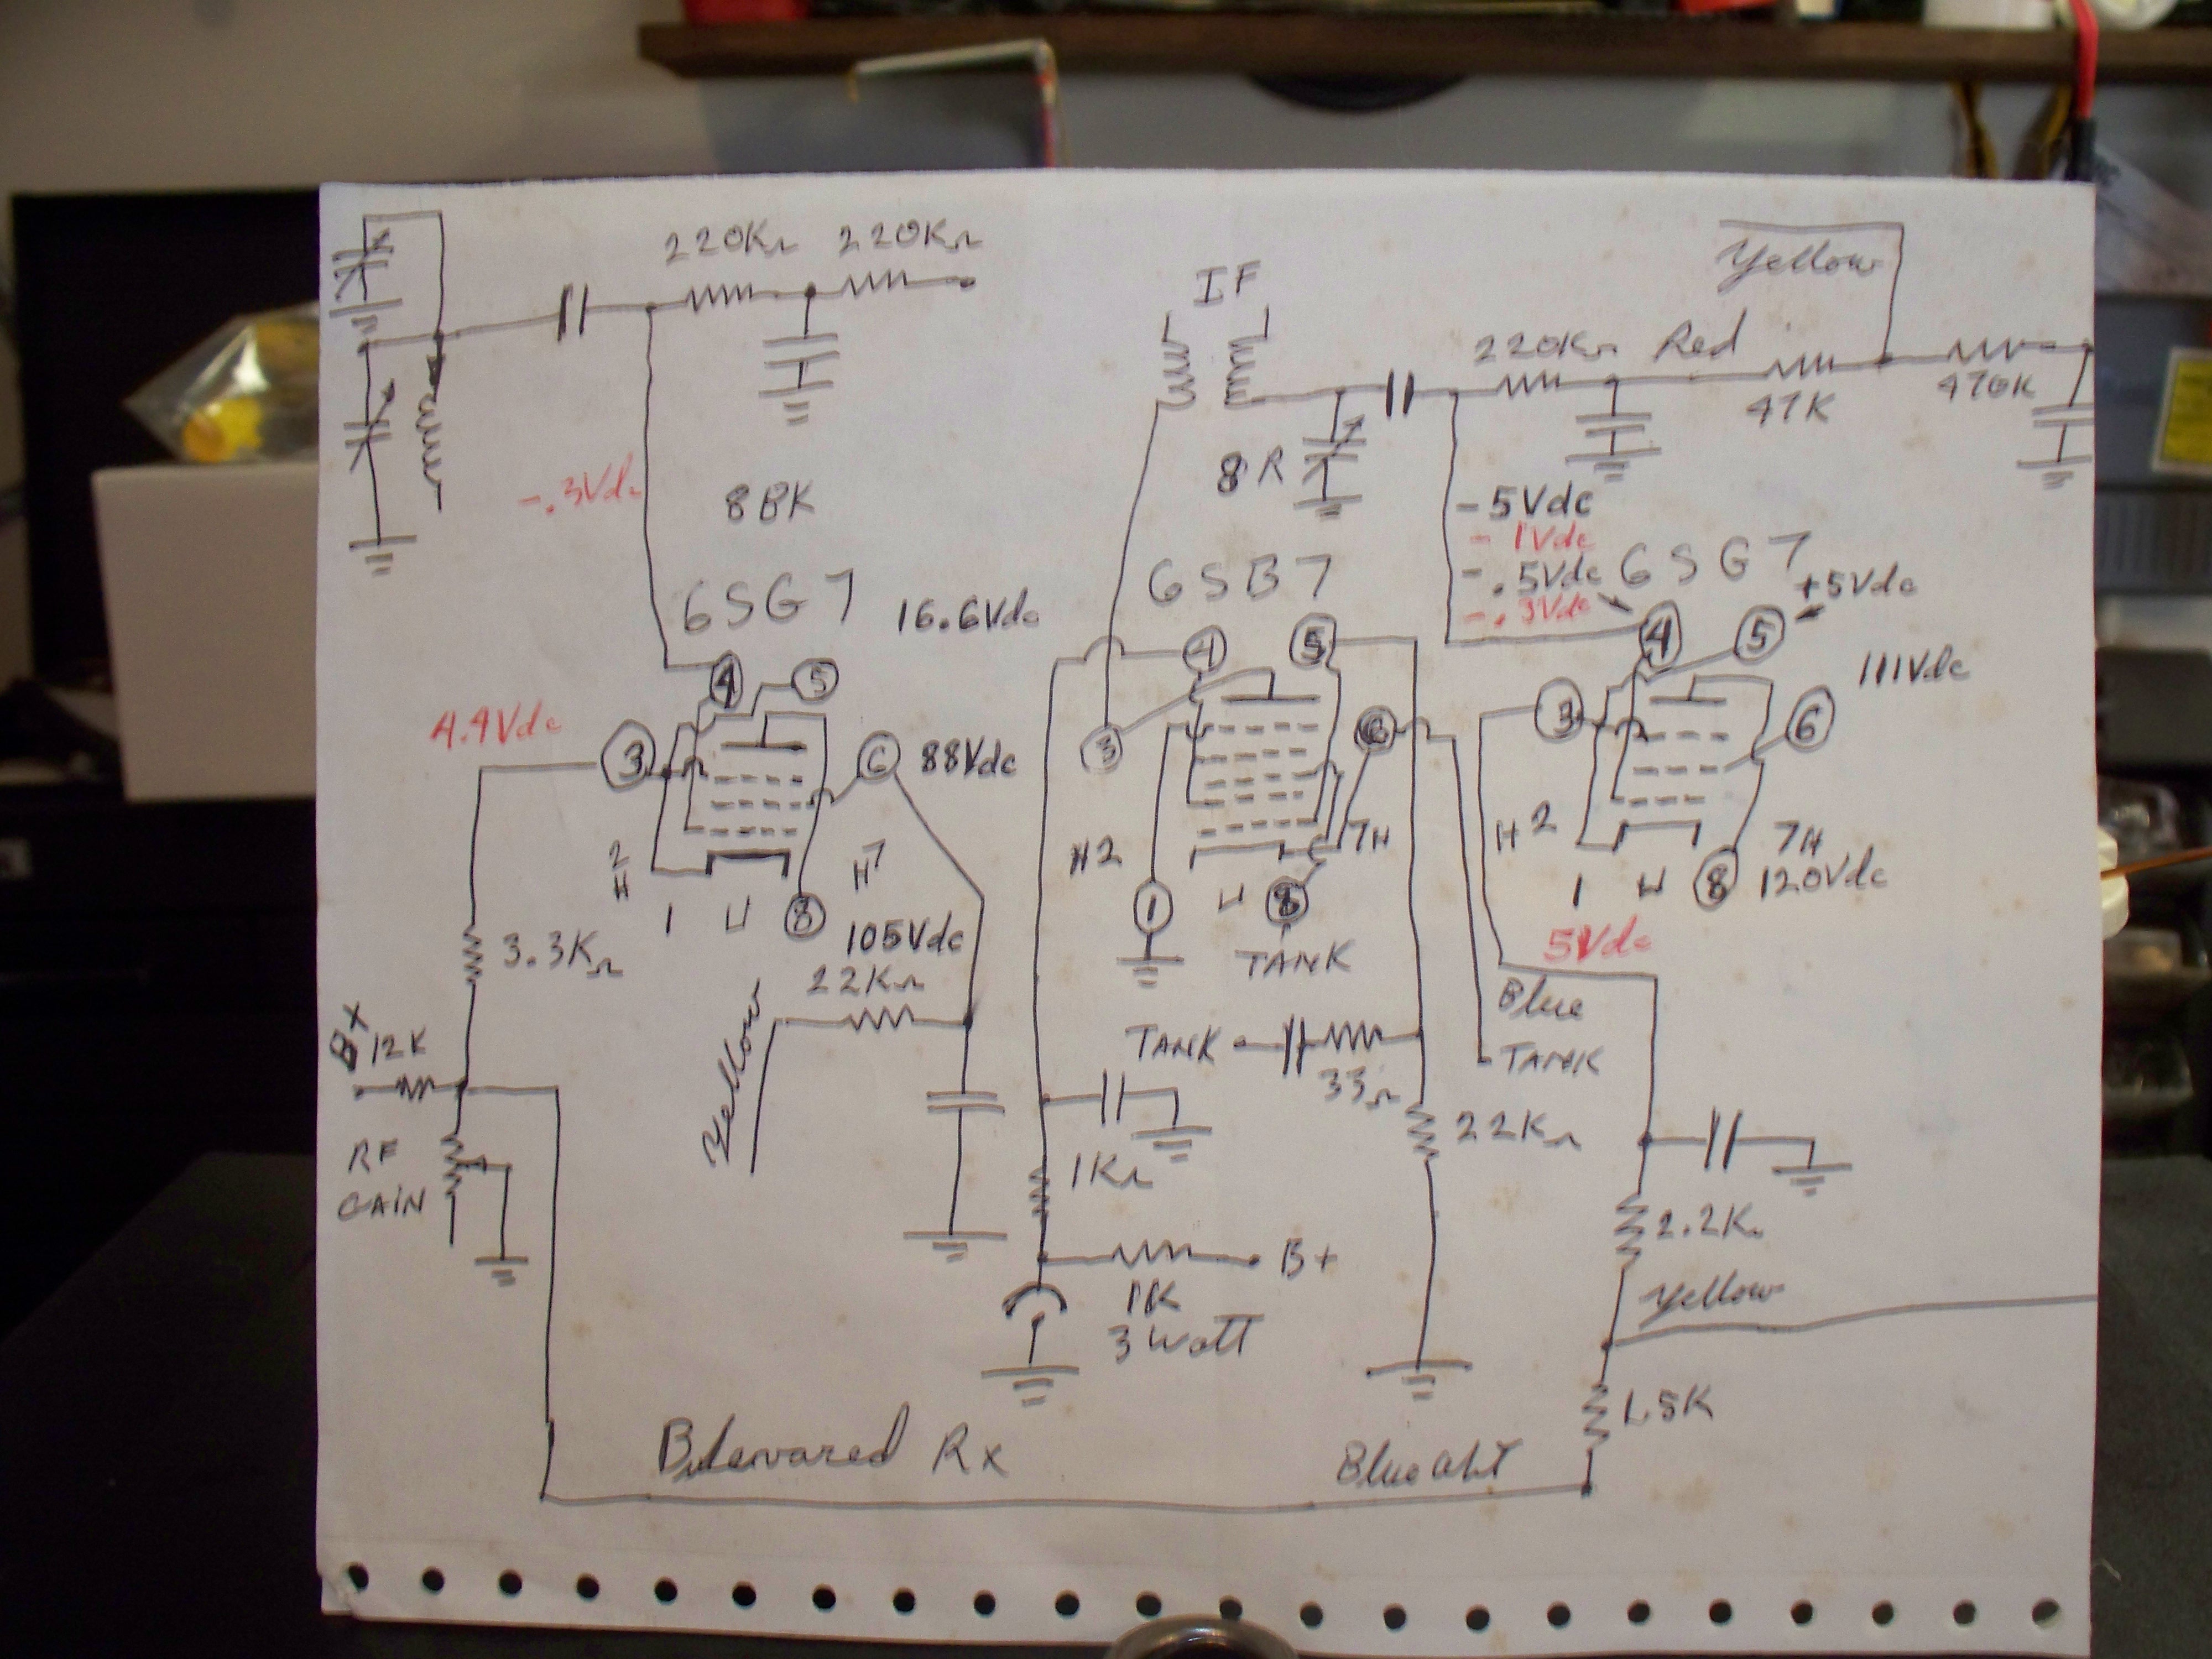 220KΩ 220KΩ
IF
Yellow
220KΩ Red
47K
470K
-.3Vdc
8BK
8R
-5Vdc
-1Vdc
-.5Vdc
-.3Vdc
6SG7
16.6Vdc
6SB7
6SG7
+5Vdc
111Vdc
4.4Vdc
4 5
3
6 88Vdc
4 5
3
6
4 5
3
6
2
H
1
8
H7
105Vdc
H2
1
8
7H
TANK
H2
1
8
7H
120Vdc
3.3KΩ
22KΩ
Yellow
5Vdc
Blue
B+ 12K
TANK
33Ω
TANK
RF
GAIN
1KΩ
22KΩ
2.2K
B+
1K
3 Watt
Yellow
1.5K
Rx